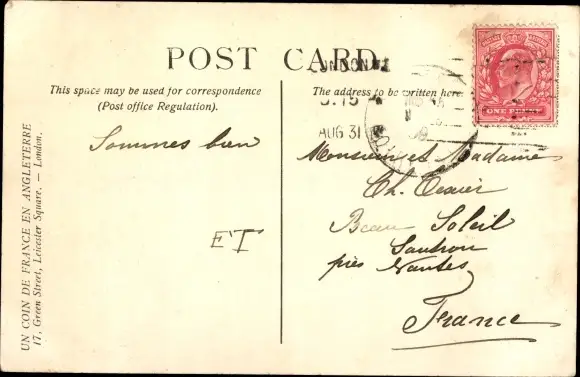 POST CARD
LONDON.W
This space may be used for correspondence
(Post office Regulation).
The address to be written here.
5.15
AUG 31
ONE PENNY
Sommes bien
Monsieur et Madame
Ch. Texier
Beau Soleil
Sautron
près Nantes
France
ET
UN COIN DE FRANCE EN ANGLETERRE
17, Green Street, Leicester Square. — London.